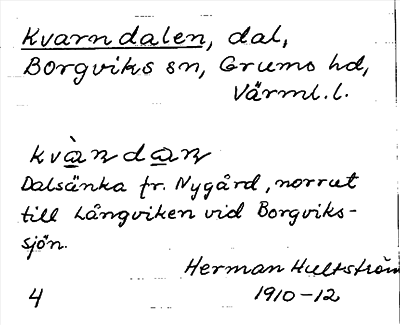 Kvarndalen, dal,
Borgviks sn, Grums hd,
Värml. l.
kvàndan
Dalsänka fr. Nygård, norrut
till Långviken vid Borgviks-
sjön.
Herman Hultström
4 1910-12